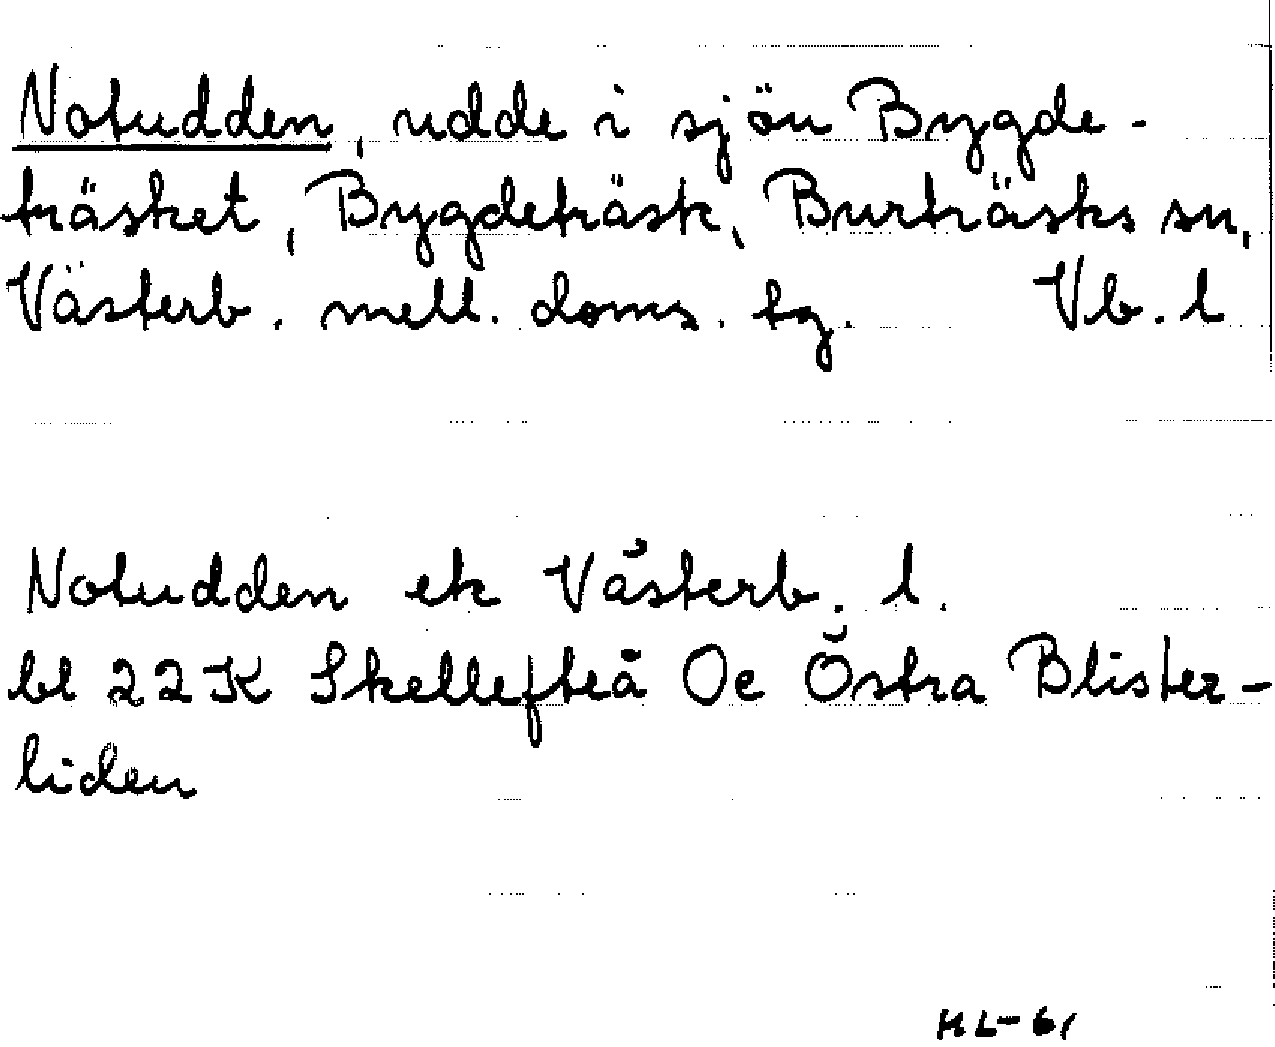 Notudden, udde i sjön Bygde-
träsket, Bygdeträsk, Burträsks sn,
Västerb. mell. doms. tg. Vb. l
Notudden ek Västerb. l.
bl 22K Skellefteå Oc Östra Blister-
liden
HL-61